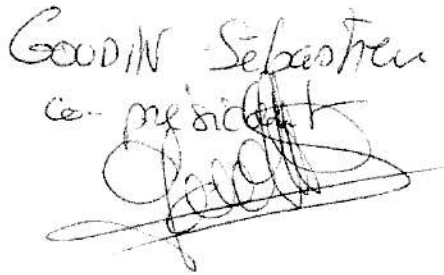 GOUDIN Sébastien
co-président